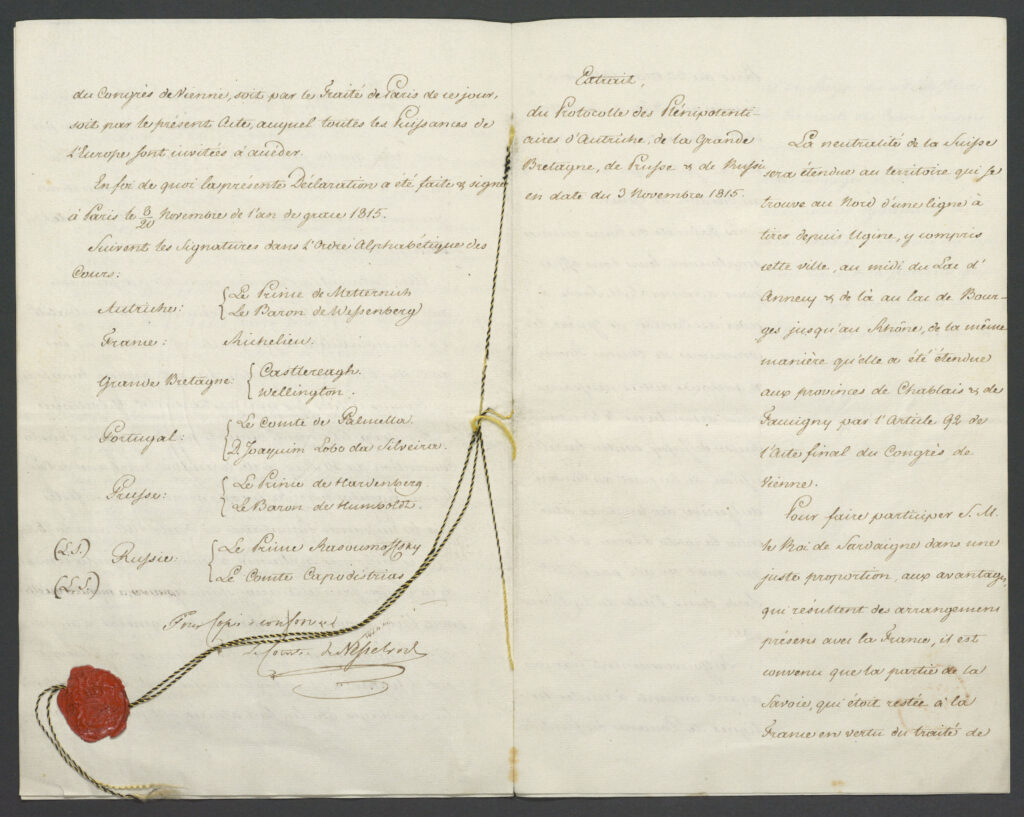 du Congrès de Vienne, soit par le Traité de Paris de ce jour,
soit par le présent Acte, auquel toutes les Puissances de
l'Europe sont invitées à accéder.
En foi de quoi la présente Déclaration a été faite & signée
à Paris le 8/20 Novembre de l'an de grace 1815.
Suivent les Signatures dans l'Ordre Alphabétique des
Cours:
Autriche: { Le Prince de Metternich
Le Baron de Wessenberg
France: Richelieu.
Grande Bretagne: { Castlereagh.
Wellington.
Portugal: { Le Comte de Palmella
D. Joaquim Lobo da Silveira.
Prusse: { Le Prince de Hardenberg.
Le Baron de Humboldt.
(L.S.) Russie: { Le Prince Rasoumoffsky
(L.S.) Le Comte Capodistrias
Pour Copie conforme
Le Comte de Nesselrode
Extrait,
du Protocolle des Plénipotenti-
aires d'Autriche, de la Grande
Bretagne, de Prusse & de Russie
en date du 3 Novembre 1815.
La neutralité de la Suisse
sera étendue au territoire qui se
trouve au Nord d'une ligne à
tirer depuis Ugine, y compris
cette ville, au midi du Lac d'
Annecy & de là au lac de Bour-
ges jusqu'au Rhône, de la même
manière qu'elle a été étendue
aux provinces de Chablais & de
Faucigny par l'Article 92 de
l'Acte final du Congrès de
Vienne.
Pour faire participer S. M.
le Roi de Sardaigne dans une
juste proportion, aux avantages,
qui résultent des arrangemens
présens avec la France, il est
convenu que la partie de la
Savoie, qui étoit restée à la
France en vertu du traité de